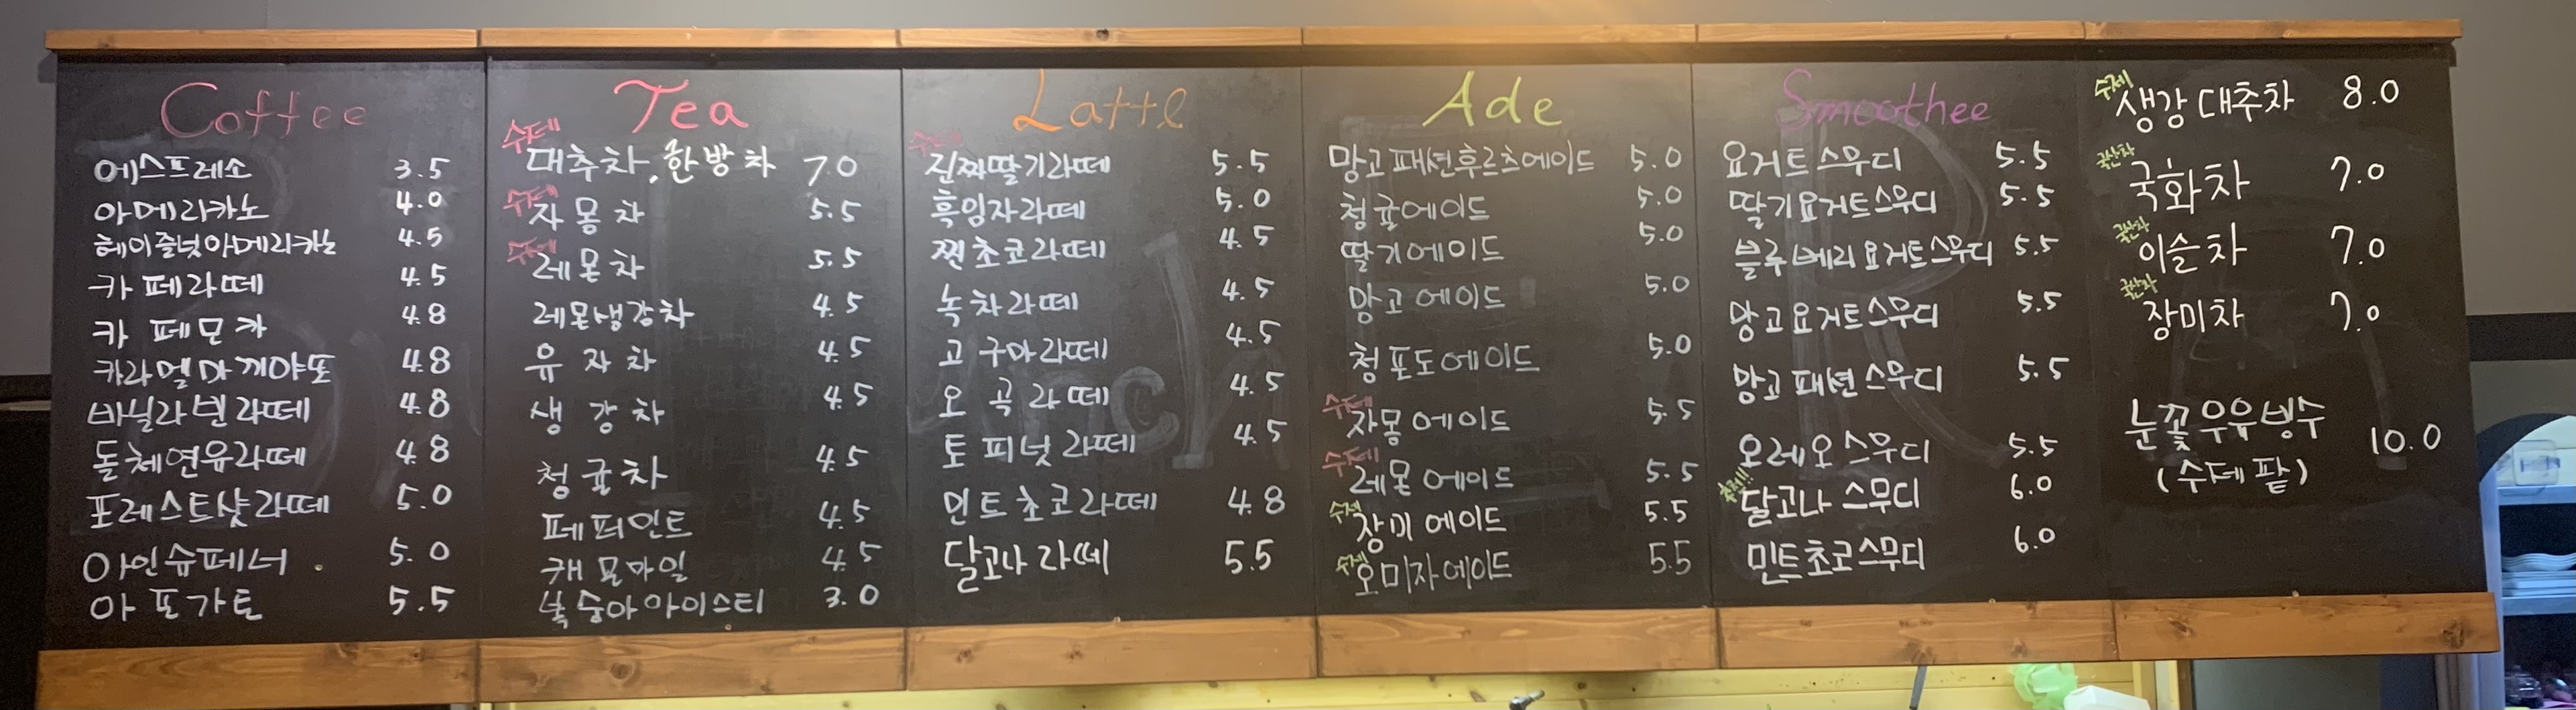 Coffee
에스프레소 3.5
아메리카노 4.0
헤이즐넛아메리카노 4.5
카페라떼 4.5
카페모카 4.8
카라멜마끼야또 4.8
바닐라빈라떼 4.8
돌체연유라떼 4.8
포레스트샷라떼 5.0
아인슈페너 5.0
아포가토 5.5
Tea
수제
대추차, 한방차 7.0
수제
자몽차 5.5
수제
레몬차 5.5
레몬생강차 4.5
유자차 4.5
생강차 4.5
청귤차 4.5
페퍼민트 4.5
캐모마일 4.5
복숭아아이스티 3.0
Latte
수제
진짜딸기라떼 5.5
흑임자라떼 5.0
찐초코라떼 4.5
녹차라떼 4.5
고구마라떼 4.5
오곡라떼 4.5
토피넛라떼 4.5
민트초코라떼 4.8
달고나라떼 5.5
Ade
망고패션후르츠에이드 5.0
청귤에이드 5.0
딸기에이드 5.0
망고에이드 5.0
청포도에이드 5.0
수제
자몽에이드 5.5
수제
레몬에이드 5.5
수제
장미에이드 5.5
수제
오미자에이드 5.5
Smoothee
요거트스무디 5.5
딸기요거트스무디 5.5
블루베리요거트스무디 5.5
망고요거트스무디 5.5
망고패션스무디 5.5
오레오스무디 5.5
달고나스무디 6.0
민트초코스무디 6.0
수제
생강대추차 8.0
국산차
국화차 7.0
국산차
이슬차 7.0
국산차
장미차 7.0
눈꽃우유빙수 10.0
(수제팥)